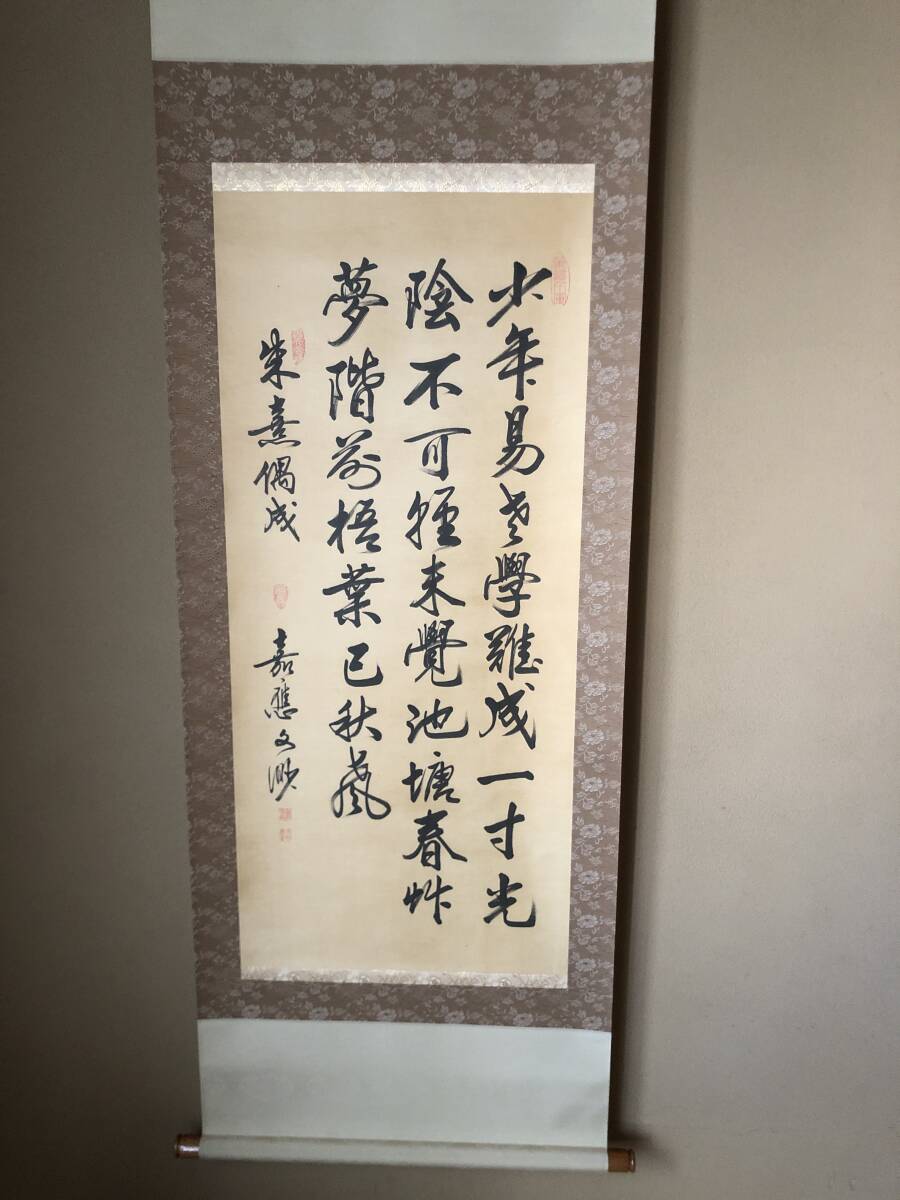 少年易老學難成一寸光
陰不可軽未覺池塘春艸
夢階前梧葉已秋風
朱熹偶成
嘉應文渺